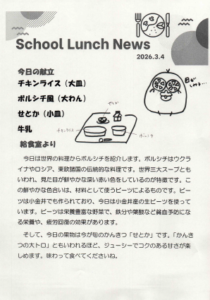 School Lunch News
2026.3.4
今日の献立
チキンライス（大皿）
ボルシチ風（大わん）
せとか（小皿）
牛乳
給食室より
今日は世界の料理からボルシチを紹介します。ボルシチはウクラ
イナやロシア、東欧諸国の伝統的な料理です。世界三大スープとも
いわれ、見た目が鮮やかな深い赤い色をしているのが特徴です。こ
の鮮やかな色合いは、材料として使うビーツによるものです。ビー
ツは小金井でも作られており、今日は小金井産の生ビーツを使って
います。ビーツは栄養豊富な野菜で、鉄分や葉酸など貧血予防にな
る栄養や、疲労回復の効果があります。
そして、今日の果物は今が旬のかんきつ「せとか」です。「かんき
つの大トロ」ともいわれるほど、ジューシーでコクのある甘さが楽
しめます。味わって食べてくださいね。